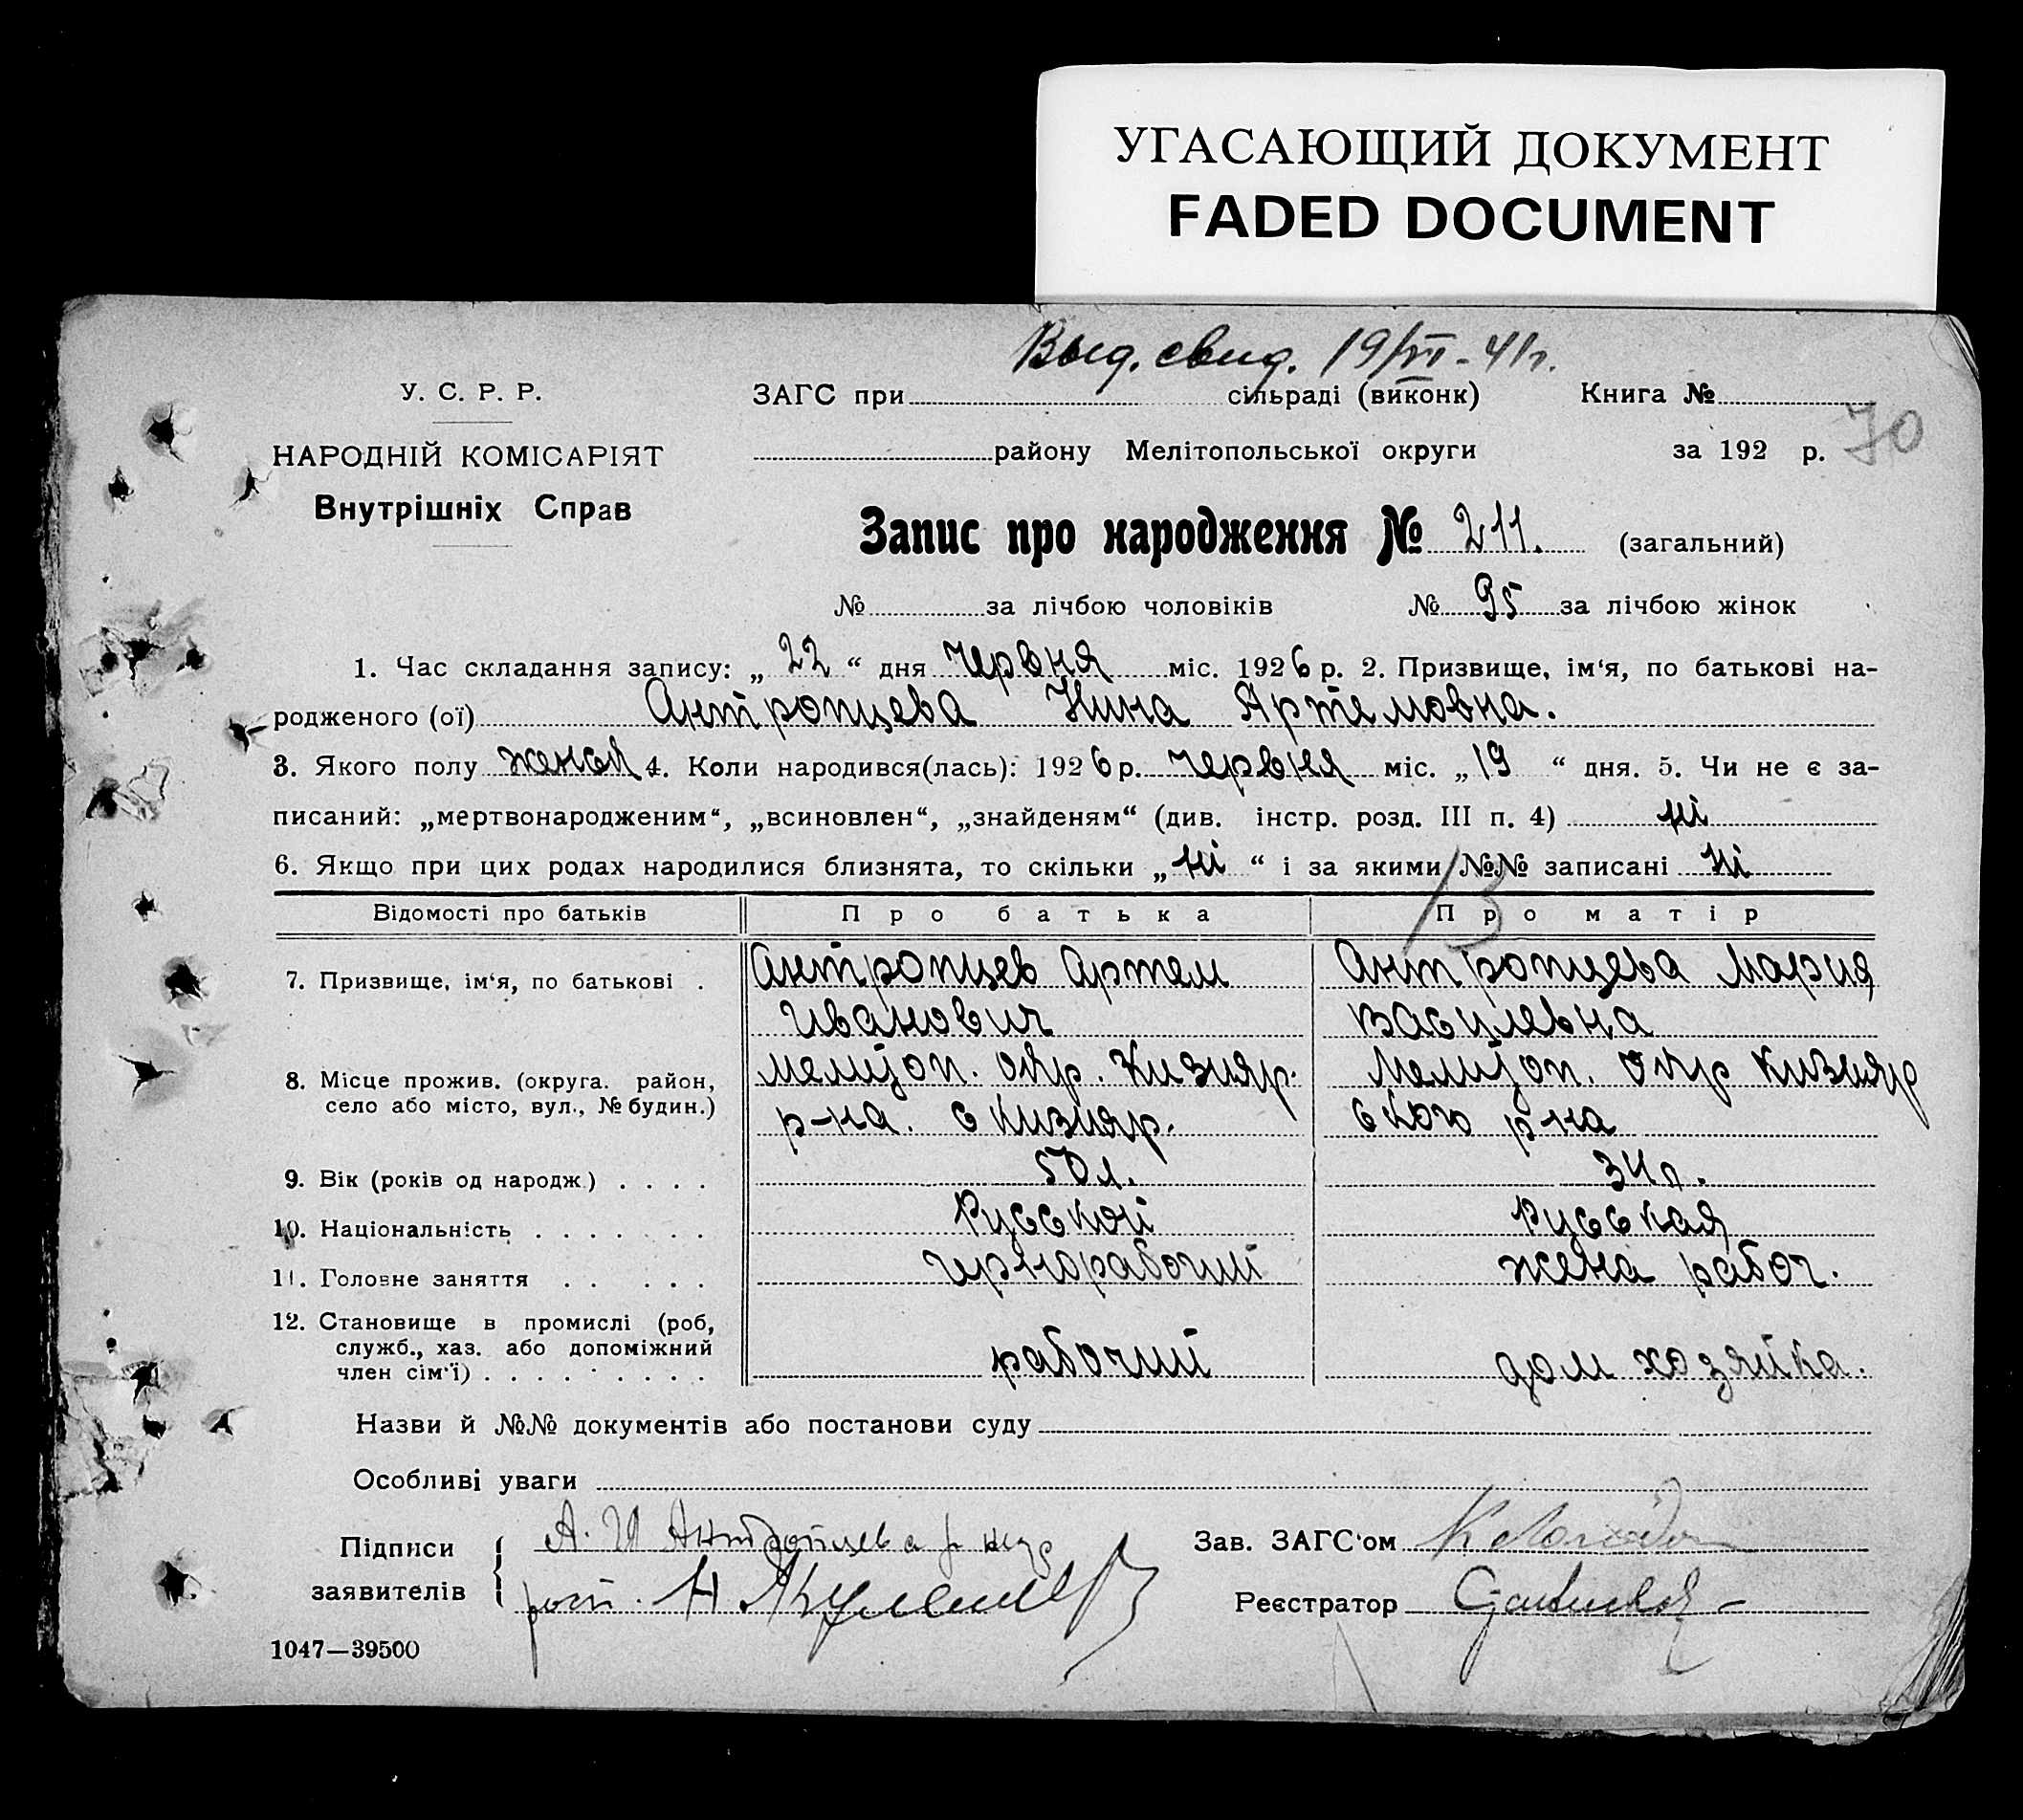 УГАСАЮЩИЙ ДОКУМЕНТ
FADED DOCUMENT
Выд. свид. 19/VII-41г.
У. С. Р. Р.
ЗАГС при сільраді (виконк) Книга №
70
НАРОДНІЙ КОМІСАРІЯТ
району Мелітопольської округи за 192 р.
Внутрішніх Справ
Запис про народження № 211. (загальний)
№ за лічбою чоловіків № 95 за лічбою жінок
1. Час складання запису: „22“ дня червня міс. 1926 р. 2. Призвище, ім‘я, по батькові на-
родженого (ої) Антропцева Нина Артемовна.
3. Якого полу женск 4. Коли народився(лась): 1926 р. червня міс. „19“ дня. 5. Чи не є за-
писаний: „мертвонародженим“, „всиновлен“, „знайденям“ (див. інстр. розд. III п. 4) ні
6. Якщо при цих родах народилися близнята, то скільки „ні“ і за якими №№ записані ні
13
Відомості про батьків Про батька Про матір
7. Призвище, ім‘я, по батькові . Антропцев Артем Антропцева Мария
Иванович Василевна
8. Місце прожив. (округа. район, Мелитоп. окр. Кизияр. Мелитоп. окр Кизияр
село або місто, вул., № будин.) р-на. с Кизияр. ского р-на
9. Вік (років од народж.) . . . . 50 л. 34 л.
10. Національність . . . . . . . Русской Русская
11. Головне заняття . . . . . чернорабочий жена рабоч.
12. Становище в промислі (роб,
служб., хаз. або допоміжний рабочий дом хозяйка.
член сім‘ї) . . . . . . . . .
Назви й №№ документів або постанови суду
Особливі уваги
Підписи А. И Антропцева Зав. ЗАГС‘ом
заявителів Реєстратор
1047—39500